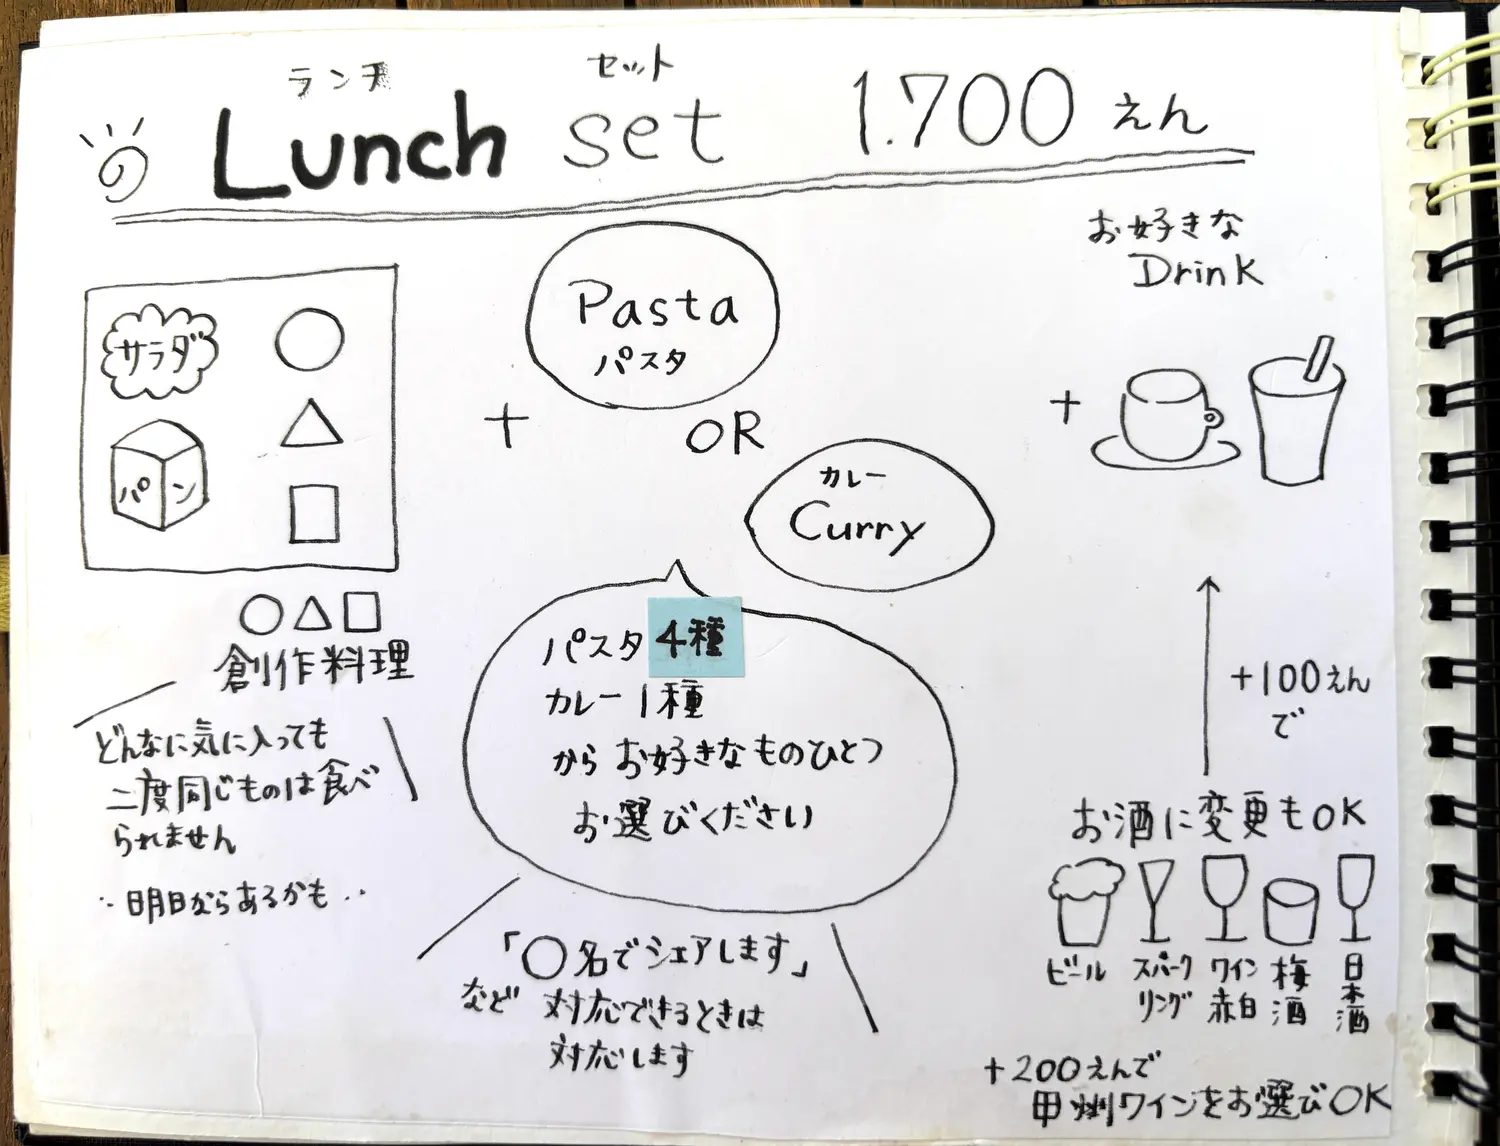 ランチ セット
の Lunch set 1.700 えん
サラダ
パン
○△□
創作料理
どんなに気に入っても
二度同じものは食べ
られません
‥明日ならあるかも‥
+
Pasta
パスタ
OR
カレー
Curry
パスタ 4種
カレー 1種
から お好きなものひとつ
お選びください
「○名でシェアします」
など 対応できるときは
対応します
お好きな
Drink
+
+100えん
で
お酒に変更もOK
ビール
スパーク
リング
ワイン
赤白
梅
酒
日
本
酒
+200えんで
甲州ワインをお選びOK